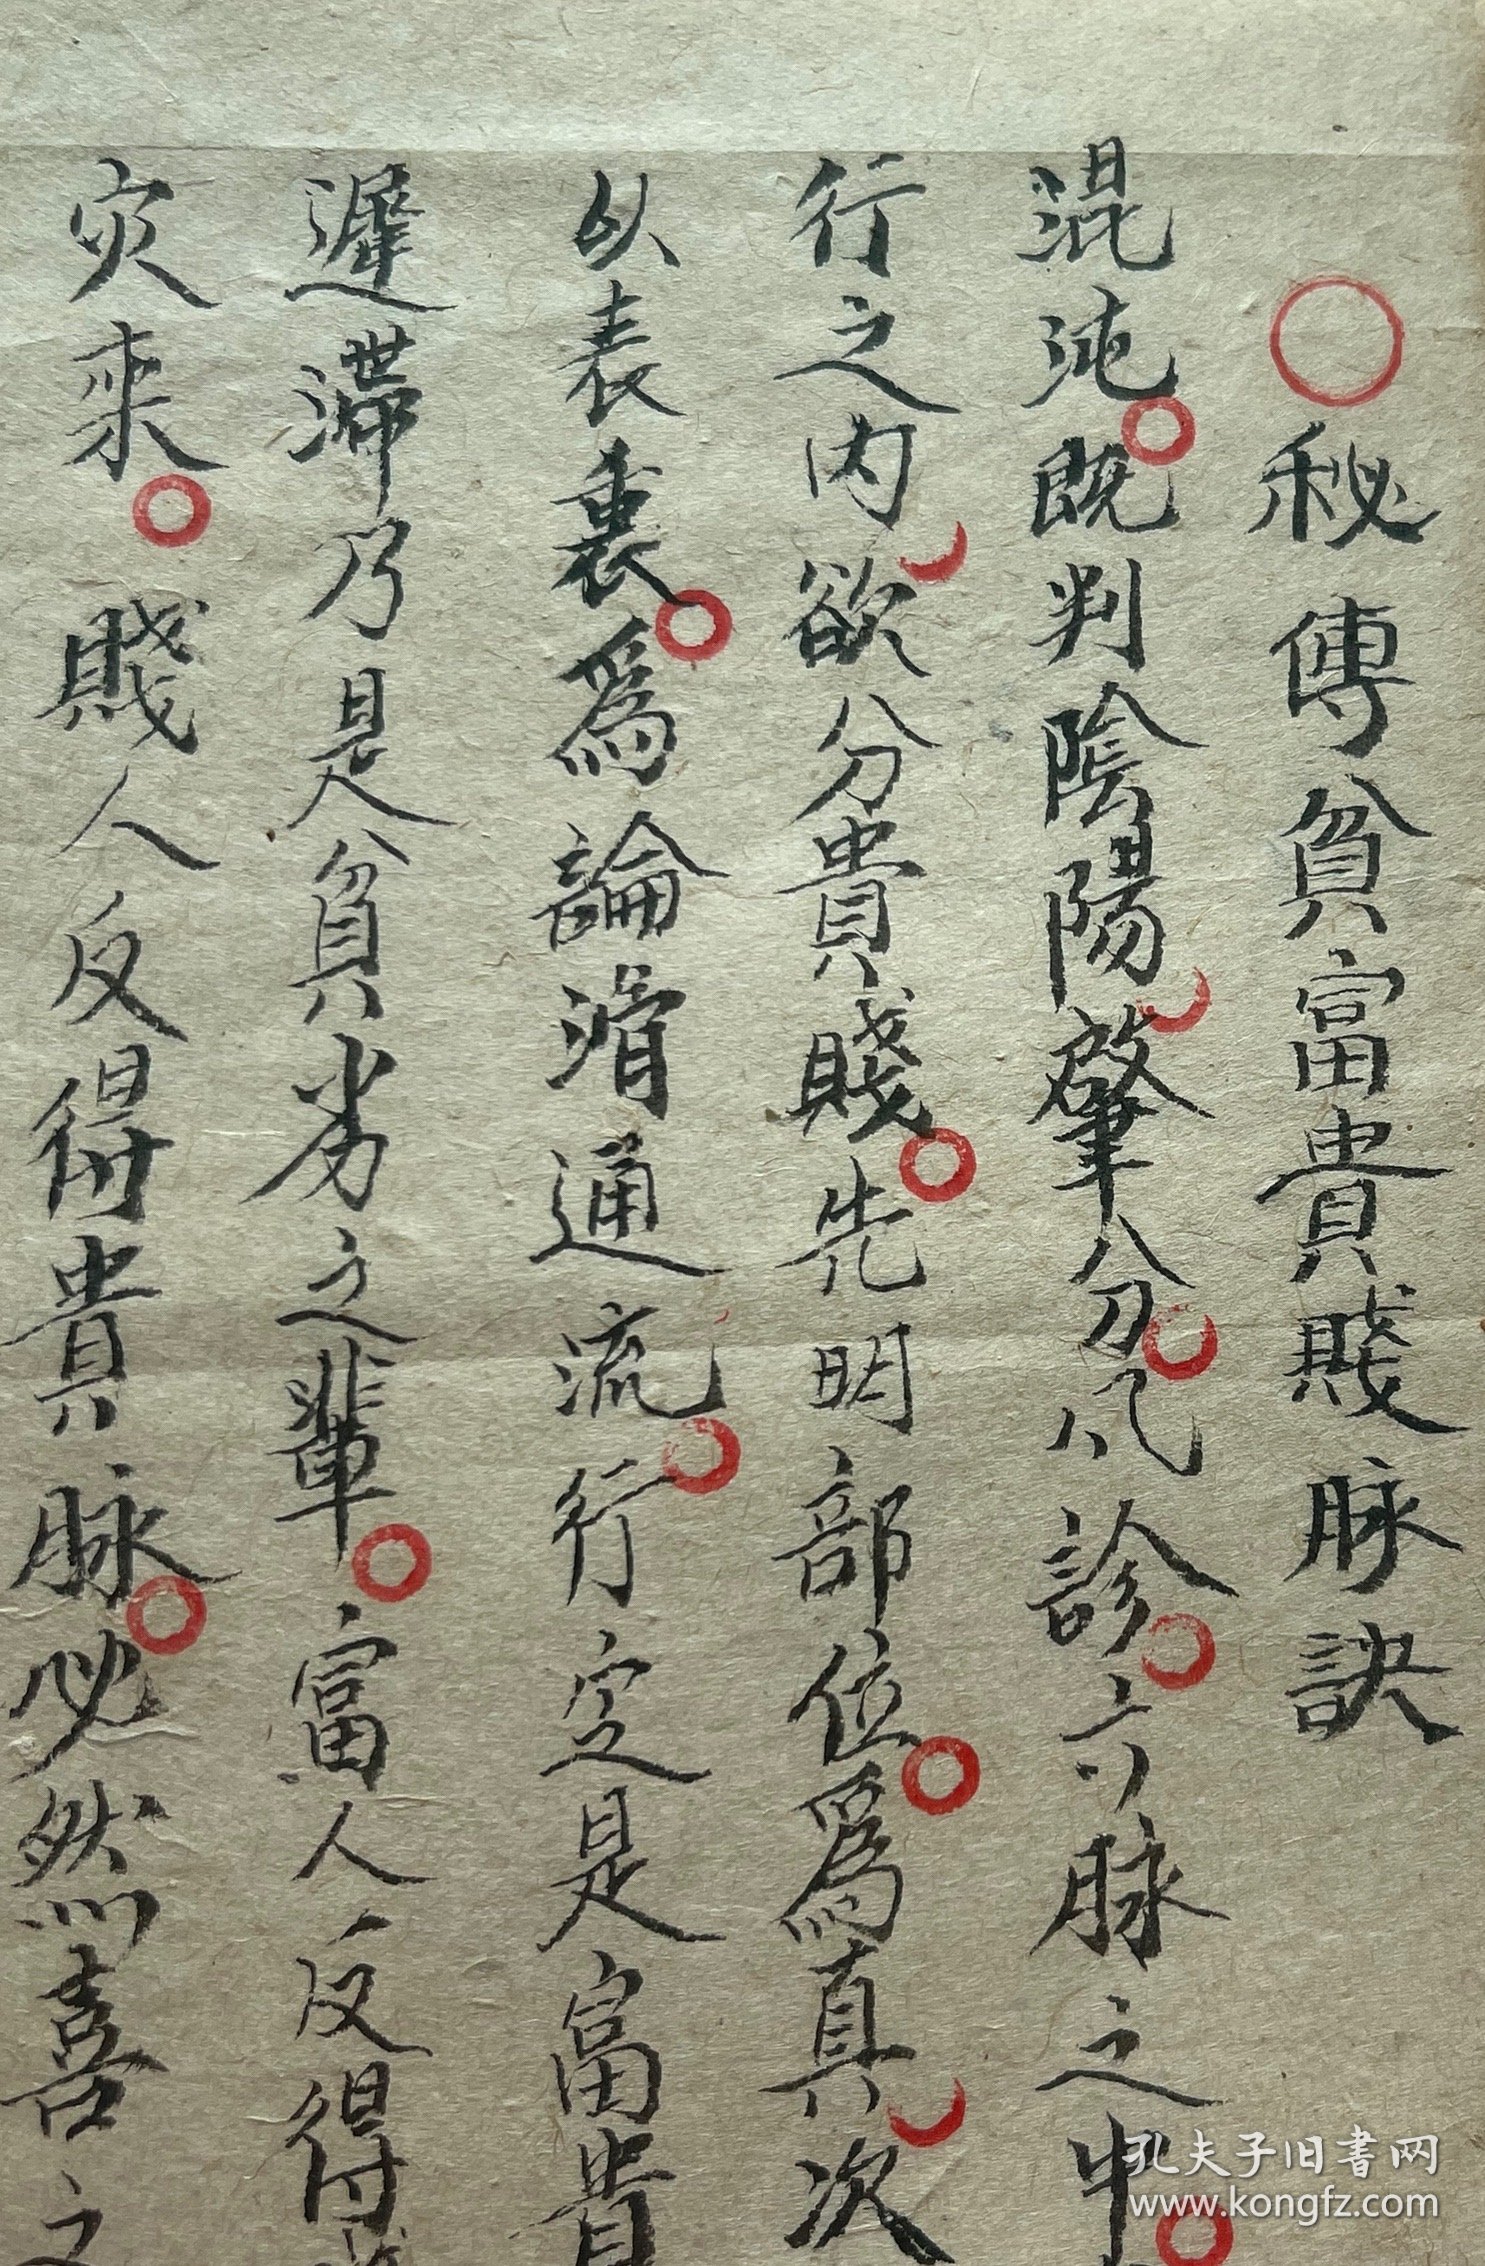 秘傳貧富貴賤脉訣
混沌既判陰陽肇分凡診六脉之中
行之内欲分貴賤先明部位爲真次
以表裏爲論滑通流行定是富貴
遲滯乃是貧劣之輩富人反得
灾来賤人反得貴脉必然喜之
孔夫子旧書网
www.kongfz.com